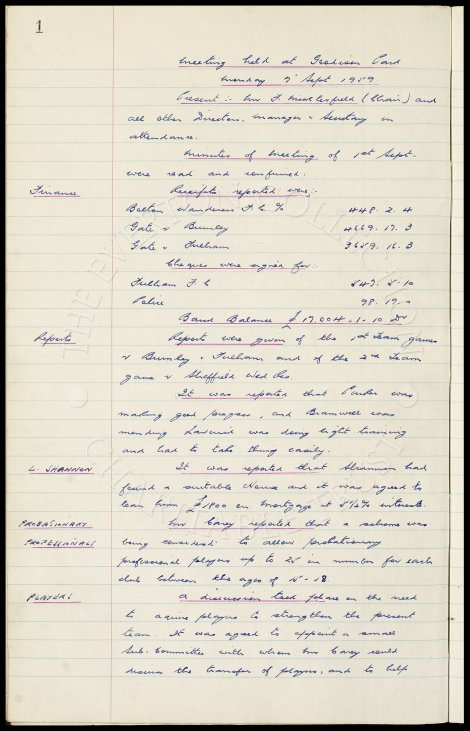 1
Meeting held at Goodison Park
Monday 7 Sept 1959
Present :- Mr F. Micklesfield (Chair) and
all other Directors. Manager & Secretary in
attendance.
Minutes of Meeting of 1st Sept.
were read and confirmed.
Finance Receipts reported were :-
Bolton Wanderers F.C. 448. 2. 4
Gate v Burnley 4669. 17. 3
Gate v Fulham 3659. 16. 3
Cheques were signed for :-
Fulham F.C 547. 5. 10
Police 98. 19. 0
Bank Balance £17,004 - 1 - 10 Dr
Reports Reports were given of the 1st Team games
v Burnley & Fulham and of the 2nd Team
game v Sheffield Wed Res
It was reported that Parker was
making good progress, and Bramwell was
mending Laverick was doing light training
and had to take things easily.
L. SHANNON It was reported that Shannon had
found a suitable House and it was agreed to
loan him £1800 on mortgage at 5½% interest.
PROBATIONARY Mr Carey reported that a scheme was
PROFESSIONALS being considered to allow probationary
professional players up to 25 in number for each
club between the ages of 15 - 18.
PLAYERS A discussion took place on the need
to aquire players to strengthen the present
team. It was agreed to appoint a small
Sub. Committee with whom Mr Carey could
discuss the transfer of players, and to help
THE EVERTON COLLECTION